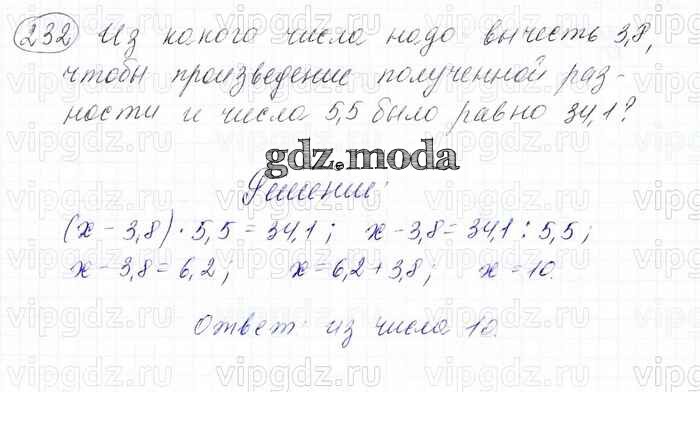 232 Из какого числа надо вычесть 3,8,
чтобы произведение полученной раз-
ности и числа 5,5 было равно 34,1?
gdz.moda
Решение:
(x - 3,8) · 5,5 = 34,1; x - 3,8 = 34,1 : 5,5;
x - 3,8 = 6,2; x = 6,2 + 3,8; x = 10.
Ответ: из числа 10.
vipgdz.ru vipgdz.ru vipgdz.ru vipgdz.ru